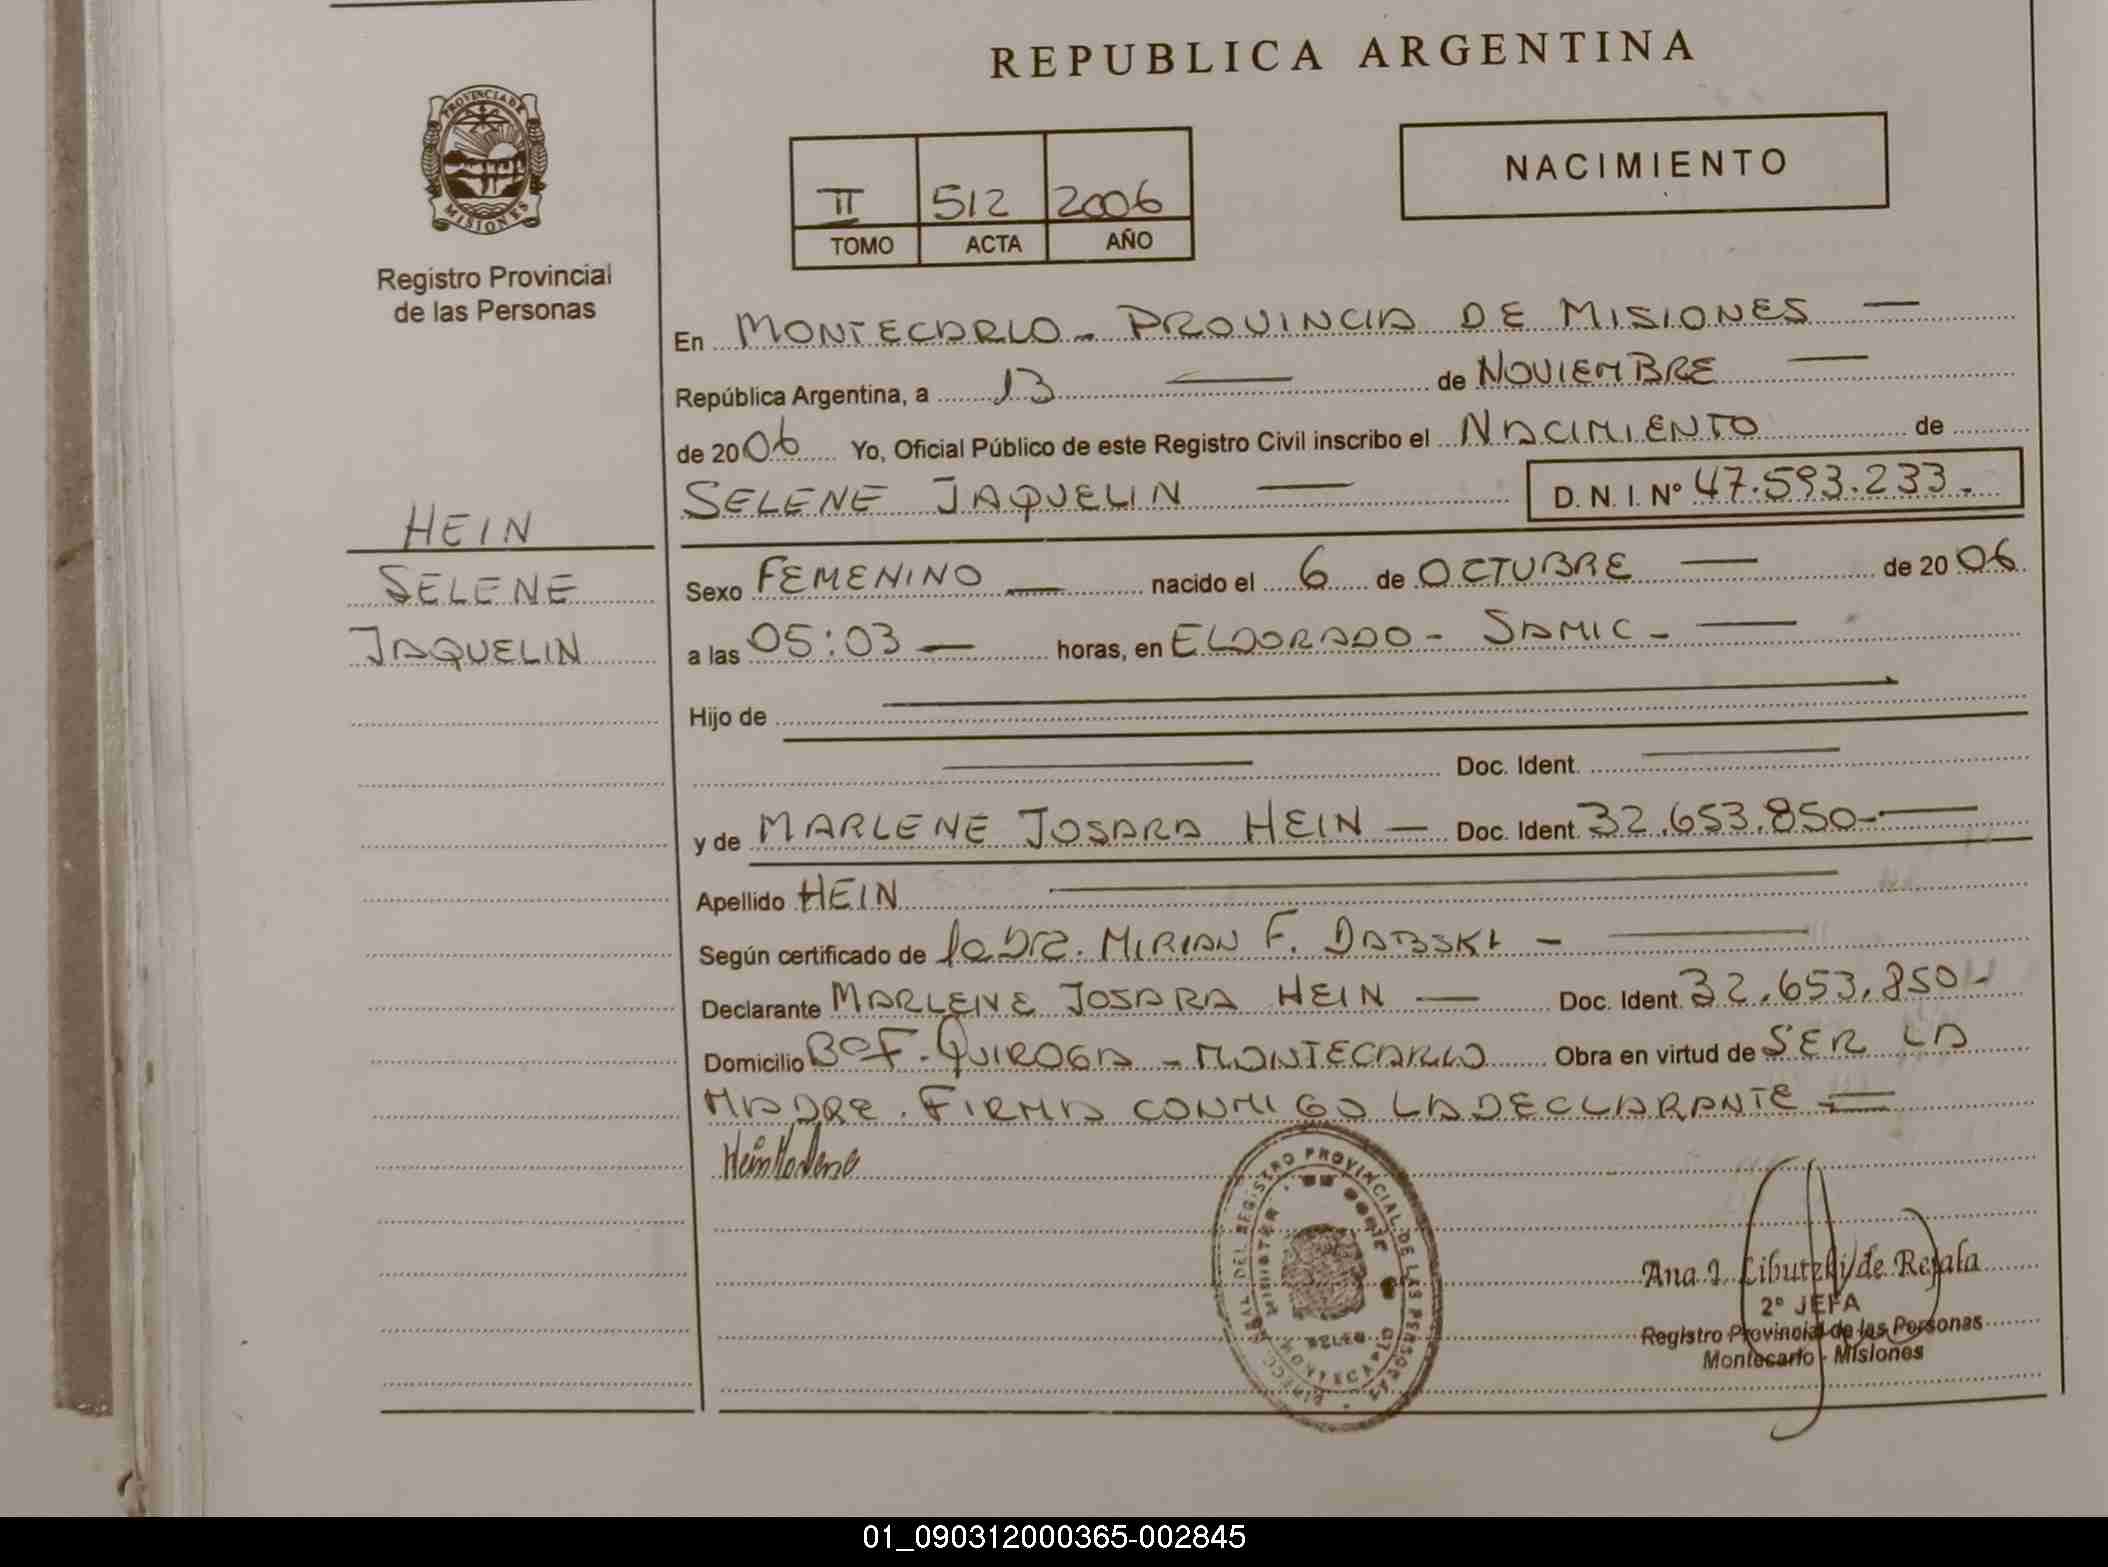 REPUBLICA ARGENTINA
PROVINCIA DE
MISIONES
Registro Provincial
de las Personas
II 512 2006
TOMO ACTA AÑO
NACIMIENTO
En MONTECARLO - PROVINCIA DE MISIONES —
República Argentina, a 13 — de NOVIEMBRE —
de 2006 Yo, Oficial Público de este Registro Civil inscribo el NACIMIENTO de
SELENE JAQUELIN — D. N. I. Nº 47.593.233.-
HEIN
SELENE
JAQUELIN
Sexo FEMENINO — nacido el 6 de OCTUBRE — de 2006
a las 05:03 — horas, en ELDORADO - SAMIC - —
Hijo de —
— Doc. Ident. —
y de MARLENE JOSARA HEIN — Doc. Ident. 32.653.850- —
Apellido HEIN —
Según certificado de la Dra. MIRIAN F. DABSKI - —
Declarante MARLENE JOSARA HEIN — Doc. Ident. 32.653.850-
Domicilio Bº F. QUIROGA - MONTECARLO Obra en virtud de SER LA
MADRE. FIRMA CONMIGO LA DECLARANTE -
Hein Marlene
DIRECC. GRAL. DEL REGISTRO PROVINCIAL DE LAS PERSONAS
MONTECARLO
Ana I. Libutzki de Rejala
2º JEFA
Registro Provincial de las Personas
Montecarlo - Misiones
01_090312000365-002845